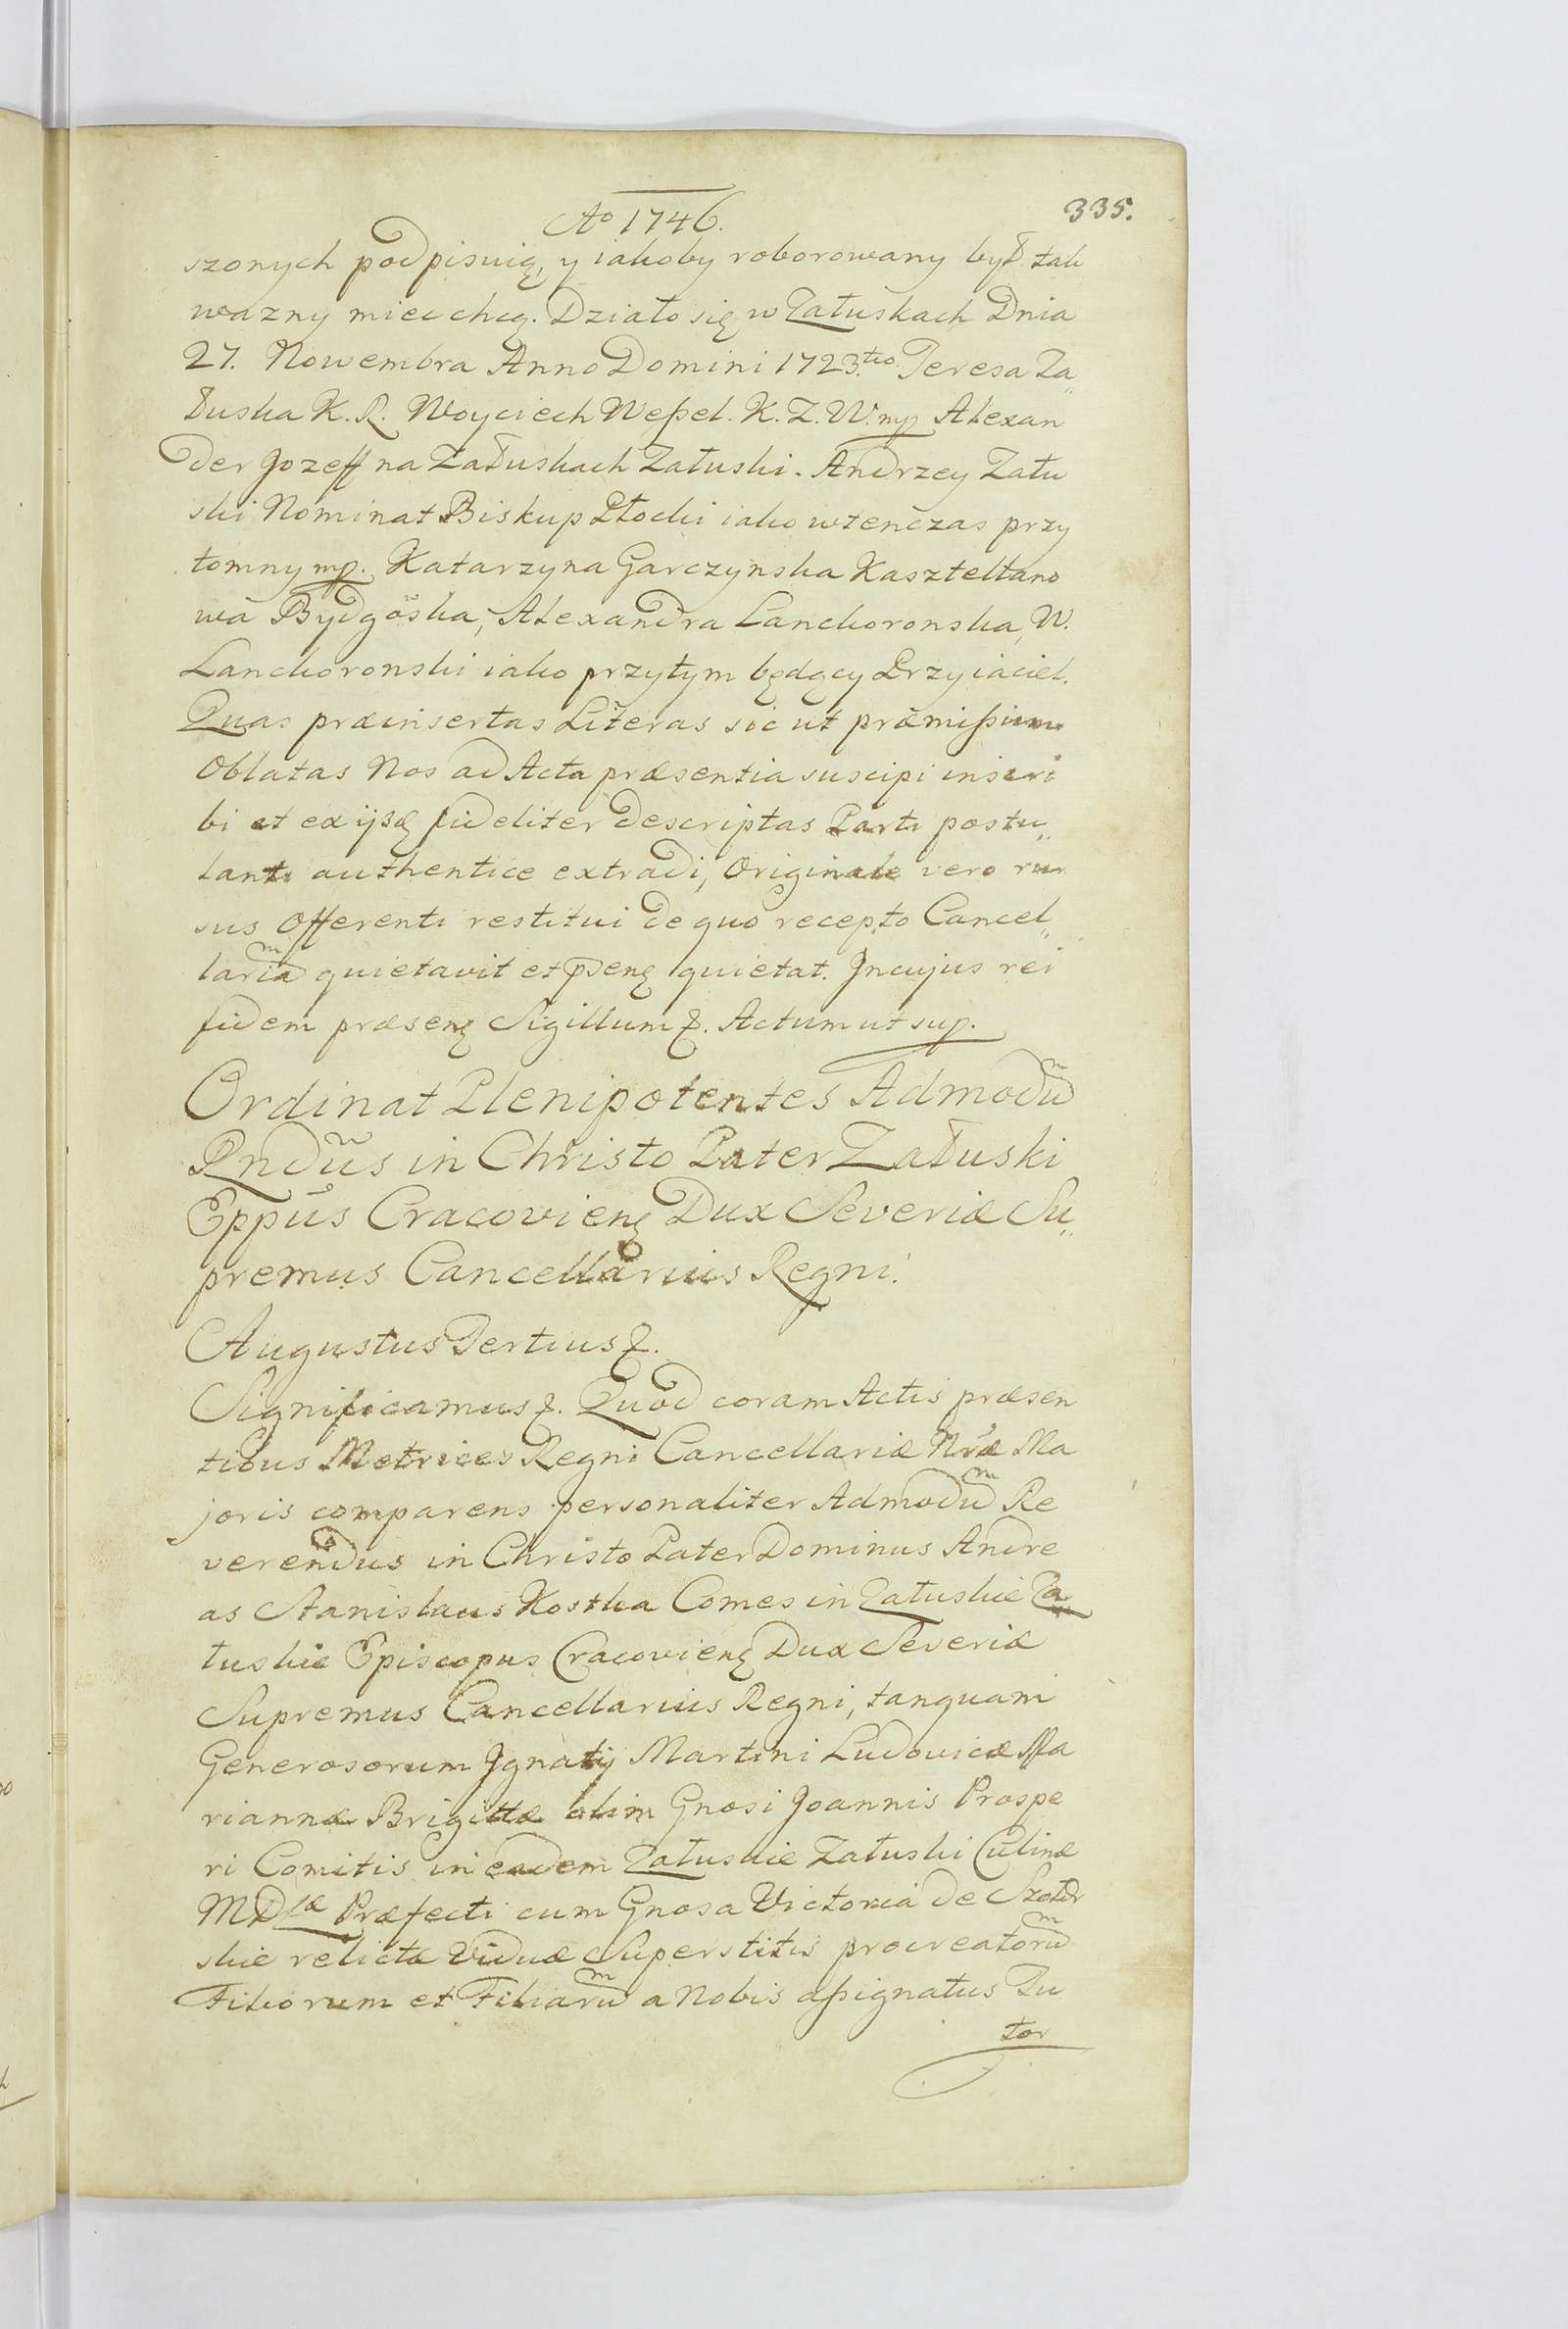 Ao 1746.
335.
szonych podpisuię, y iakoby roborowany był tak
wazny miec chcą. Działo się w Załuskach Dnia
27. Nowembra Anno Domini 1723.tio Teresa Za„
łuska K. R. Woyciech Weßel. K. Z. W. mp Alexan
der Jozeff na Załuskach Załuski. Andrzey Zału
ski Nominat Biskup Płocki iako wtenczas przy
tomny mp. Katarzyna Garczynska Kasztellano
wa Bydgoska, Alexandra Lanckoronska, W.
Lanckoronski iako przytym będący Przyiaciel.
Quas præinsertas Literas sic ut præmißum
Oblatas Nos ad Acta præsentia suscipi inscri
bi et ex ijsdę fideliter descriptas Parti postu„
lanti authentice extradi, Originale vero rur
sus Offerenti restitui de quo recepto Cancel„
lariam quietavit et pñenę quietat. In cujus rei
fidem præsenę Sigillum ę. Actum ut sup.
Ordinat Plenipotentes Admodum
Rndũs in Christo Pater Załuski
Eppũs Cracovienę Dux Severiæ Su„
premus Cancellarius Regni.
Augustus Tertius ę.
Significamus ę. Quod coram Actis præsen
tibus Metrices Regni Cancellariæ Nræ Ma
joris comparens personaliter Admodum Re
verendus in Christo Pater Dominus Andre
as Stanislaus Kostka Comes in Załuskie Za
łuskie Episcopus Cracovienę Dux Severiæ
Supremus Cancellarius Regni, tanquam
Generosorum Ignatij Martini Ludovicæ Ma
riannæ Brigittæ olim Gnosi Joannis Prospe
ri Comitis in eadem Załuskie Załuski Culinæ
MDLæ Præfecti cum Gnosa Victoria de Szołdr
skie relictæ Viduæ Superstitis procreatorum
Filiorum et Filiarum a Nobis aßignatus Tu
tor